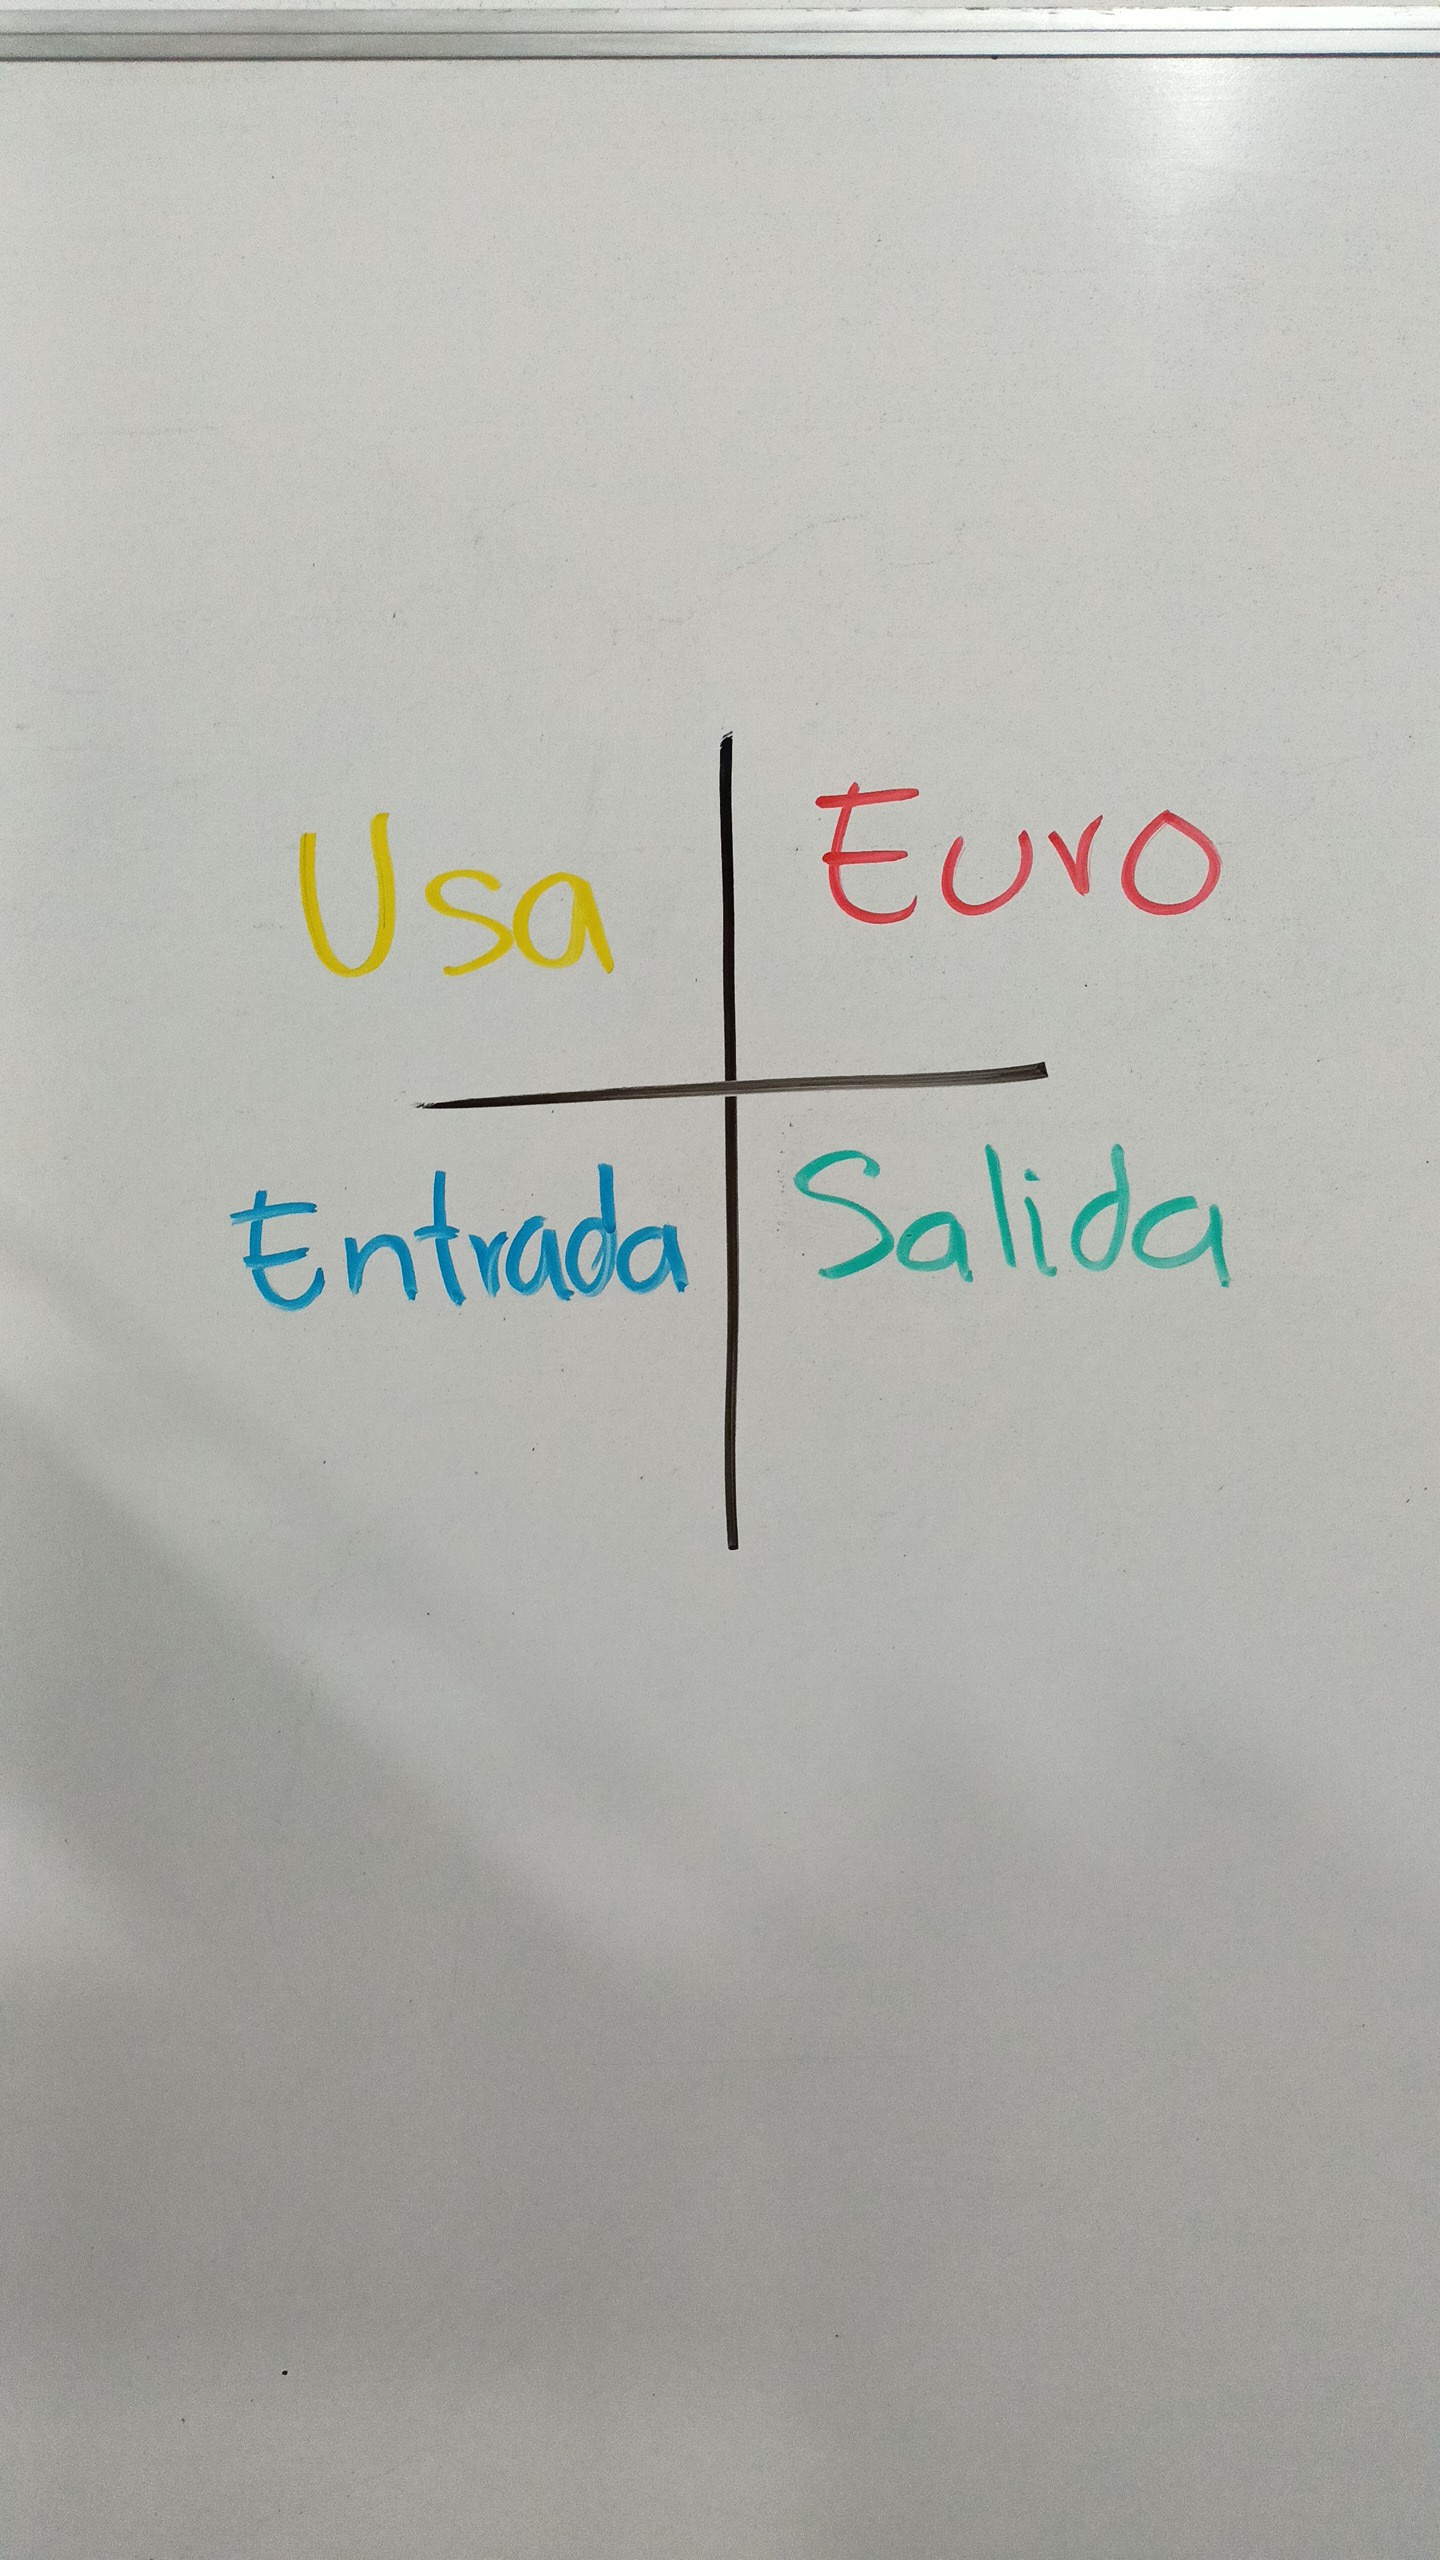 Usa Euro
Entrada Salida